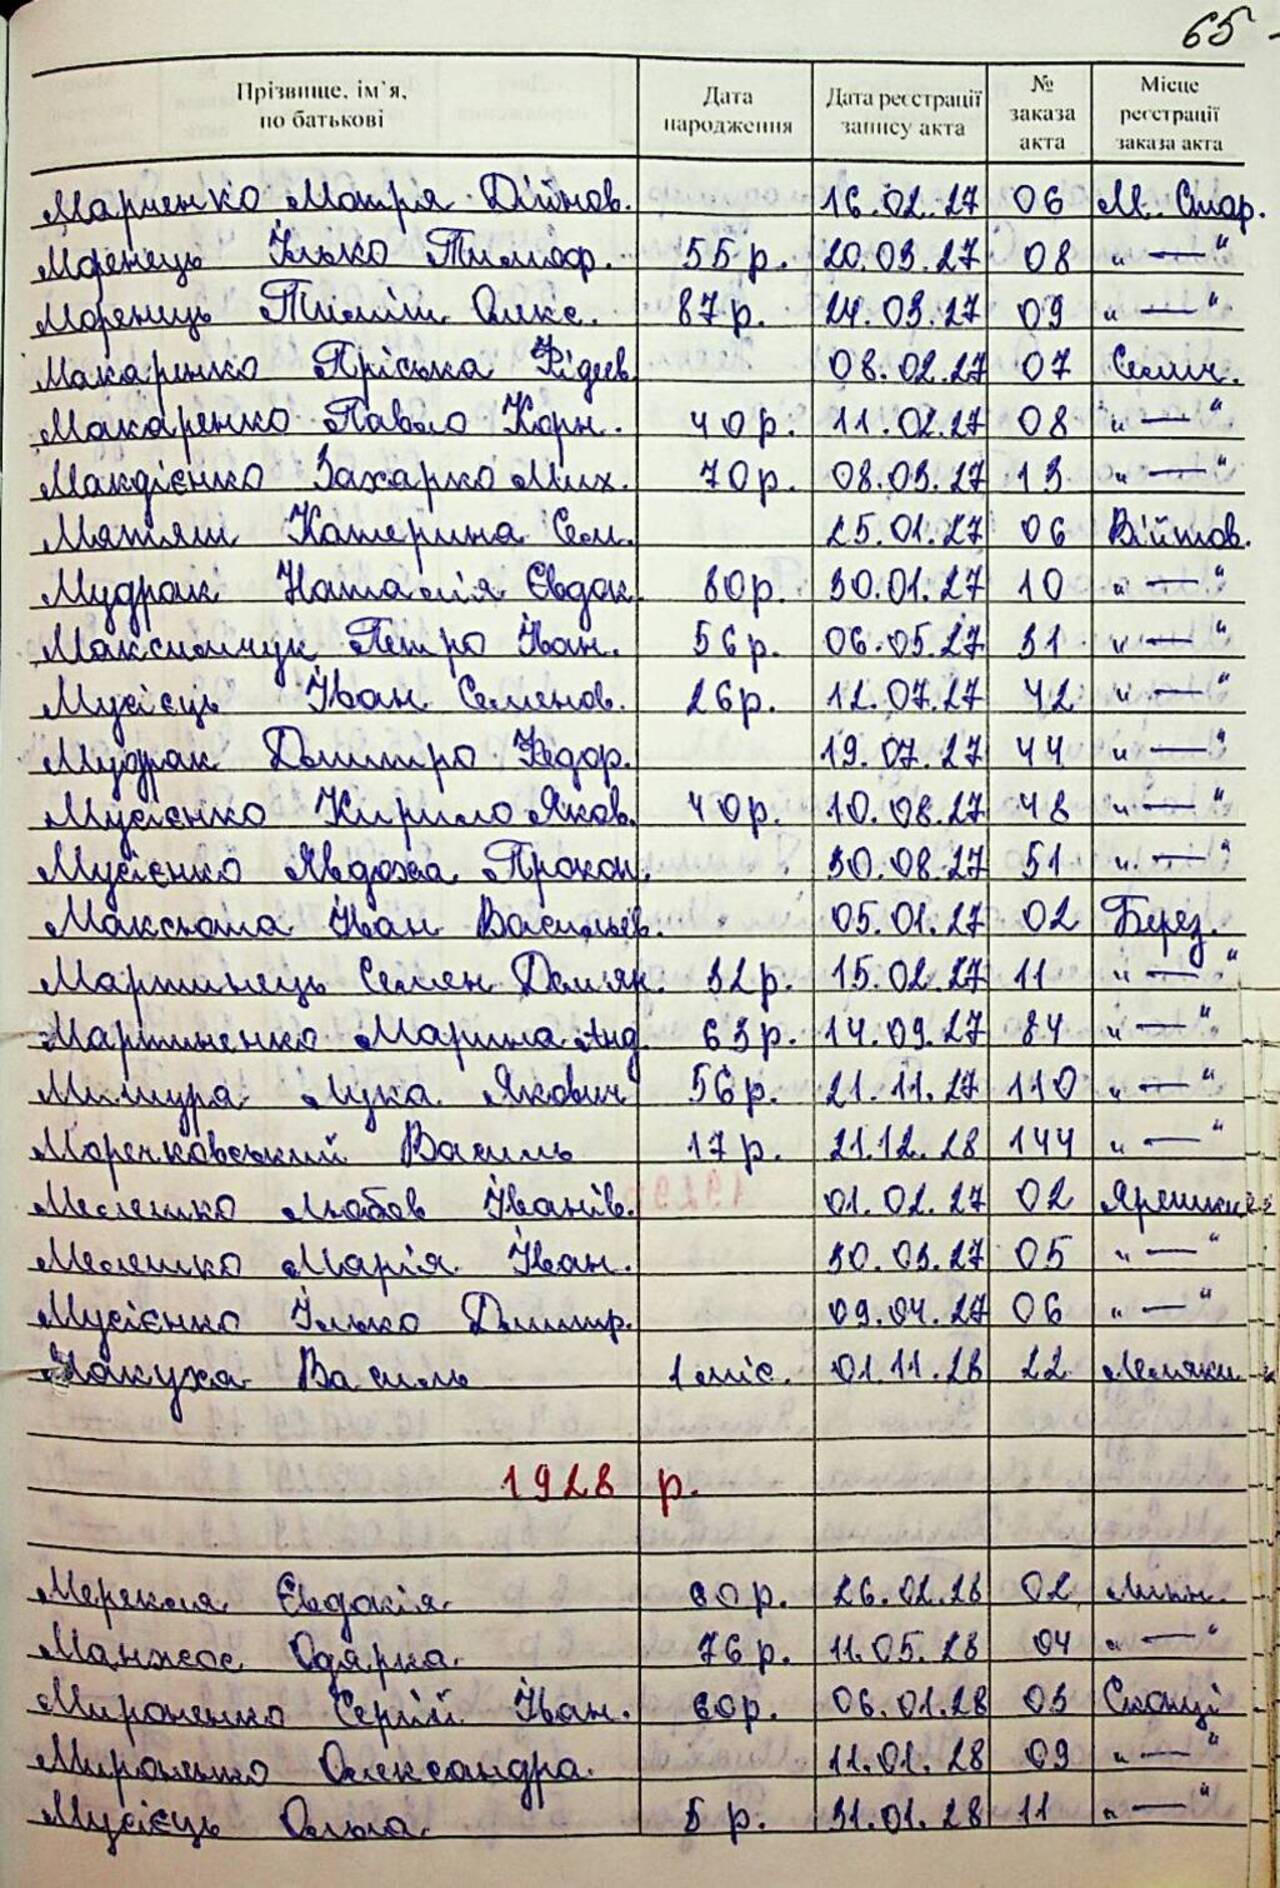 65
Прізвище, ім'я, по батькові | Дата народження | Дата реєстрації запису акта | № заказа акта | Місце реєстрації заказа акта
Марченко Мотря 16.02.27 06 М. Стар.
Моренець Ілько Тимоф. 55 р. 20.03.27 08 „ — "
Моренець Олекс. 87 р. 24.03.27 09 „ — "
Макаренко Пріська Фідеев. 08.02.27 07 Селич.
Макаренко Павло Корн. 40 р. 11.02.27 08 „ — "
Макдієнко Захарко Мих. 70 р. 08.03.27 13 „ — "
Матяш Катерина Сем. 25.01.27 06 Війтов.
Мудрак Наталія Євдок. 80 р. 30.01.27 10 „ — "
Максимчук Петро Іван. 56 р. 06.05.27 31 „ — "
Мусієць Іван Семенов. 26 р. 12.07.27 42 „ — "
Мудрак Дмитро Федор. 19.07.27 44 „ — "
Мусієнко Кирило Яков. 40 р. 10.08.27 48 „ — "
Мусієнко Явдоха Прокоп. 30.08.27 51 „ — "
Максюта Іван Васильев. 05.01.27 02 Берез.
Мартинець Семен Дем'ян. 32 р. 15.02.27 11 „ — "
Мартиненко Марина Анд. 63 р. 14.09.27 84 „ — "
Мишура Лука Якович 56 р. 21.11.27 110 „ — "
Моренковський Василь 17 р. 21.12.28 144 „ — "
Мелешко Любов Іванів. 01.02.27 02 Ярешки
Мелешко Марія Іван. 30.03.27 05 „ — "
Мусієнко Ілько Дмитр. 09.04.27 06 „ — "
Макуха Василь 1 міс. 01.11.28 22 Лемяки
1928 р.
Мерекля Євдокія 60 р. 26.02.28 02 Лип.
Манжос Одарка 76 р. 11.05.28 04 „ — "
Мироненко Сергій Іван. 60 р. 06.01.28 03 Скопці
Мироненко Олександра 11.01.28 09 „ — "
Мусієць Ольга 5 р. 31.01.28 11 „ — "